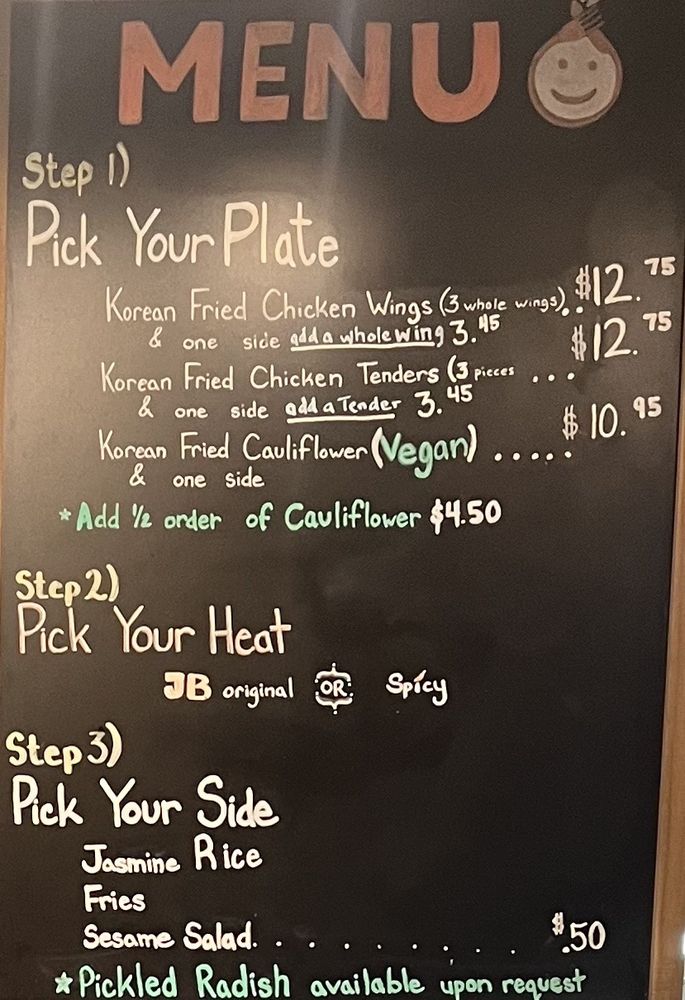 MENU
Step 1)
Pick Your Plate
Korean Fried Chicken Wings (3 whole wings).. $12.75
& one side add a whole wing 3.45
Korean Fried Chicken Tenders (3 pieces ... $12.75
& one side add a Tender 3.45
Korean Fried Cauliflower (Vegan) ..... $10.95
& one side
*Add 1/2 order of Cauliflower $4.50
Step 2)
Pick Your Heat
JB original OR Spicy
Step 3)
Pick Your Side
Jasmine Rice
Fries
Sesame Salad. . . . . . . . . $.50
*Pickled Radish available upon request